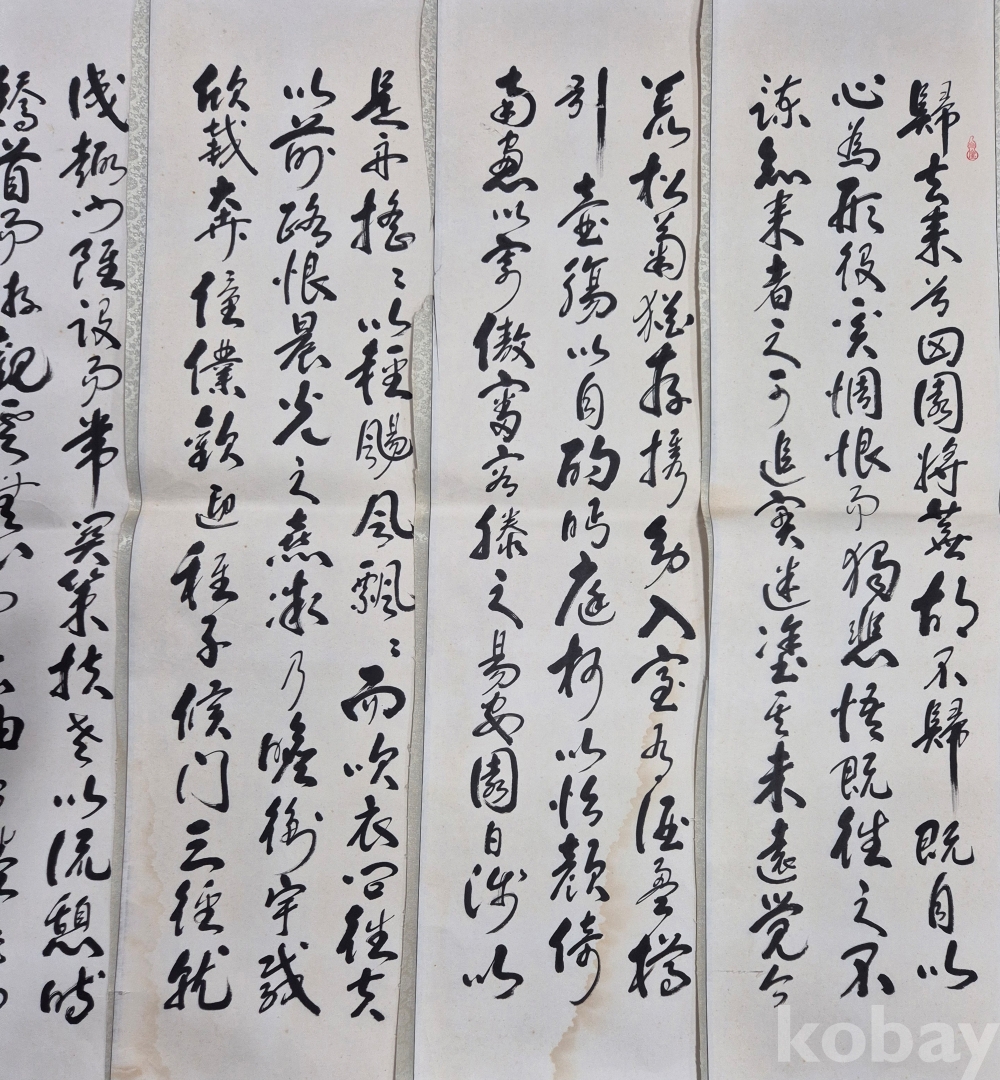 歸去來兮田園將蕪胡不歸既自以
心為形役奚惆恨而獨悲悟既往之不
諫知來者之可追實迷塗其未遠覺今
荒松菊猶存攜幼入室有酒盈樽
引壺觴以自酌眄庭柯以怡顏倚
南窓以寄傲審容膝之易安園日涉以
是舟搖〻以輕颺風飄〻而吹衣問征夫
以前路恨晨光之熹微乃瞻衡宇載
欣載奔僮僕歡迎稚子候門三徑就
成趣門雖設而常關策扶老以流憩時
矯首而遐觀雲無心
kobay